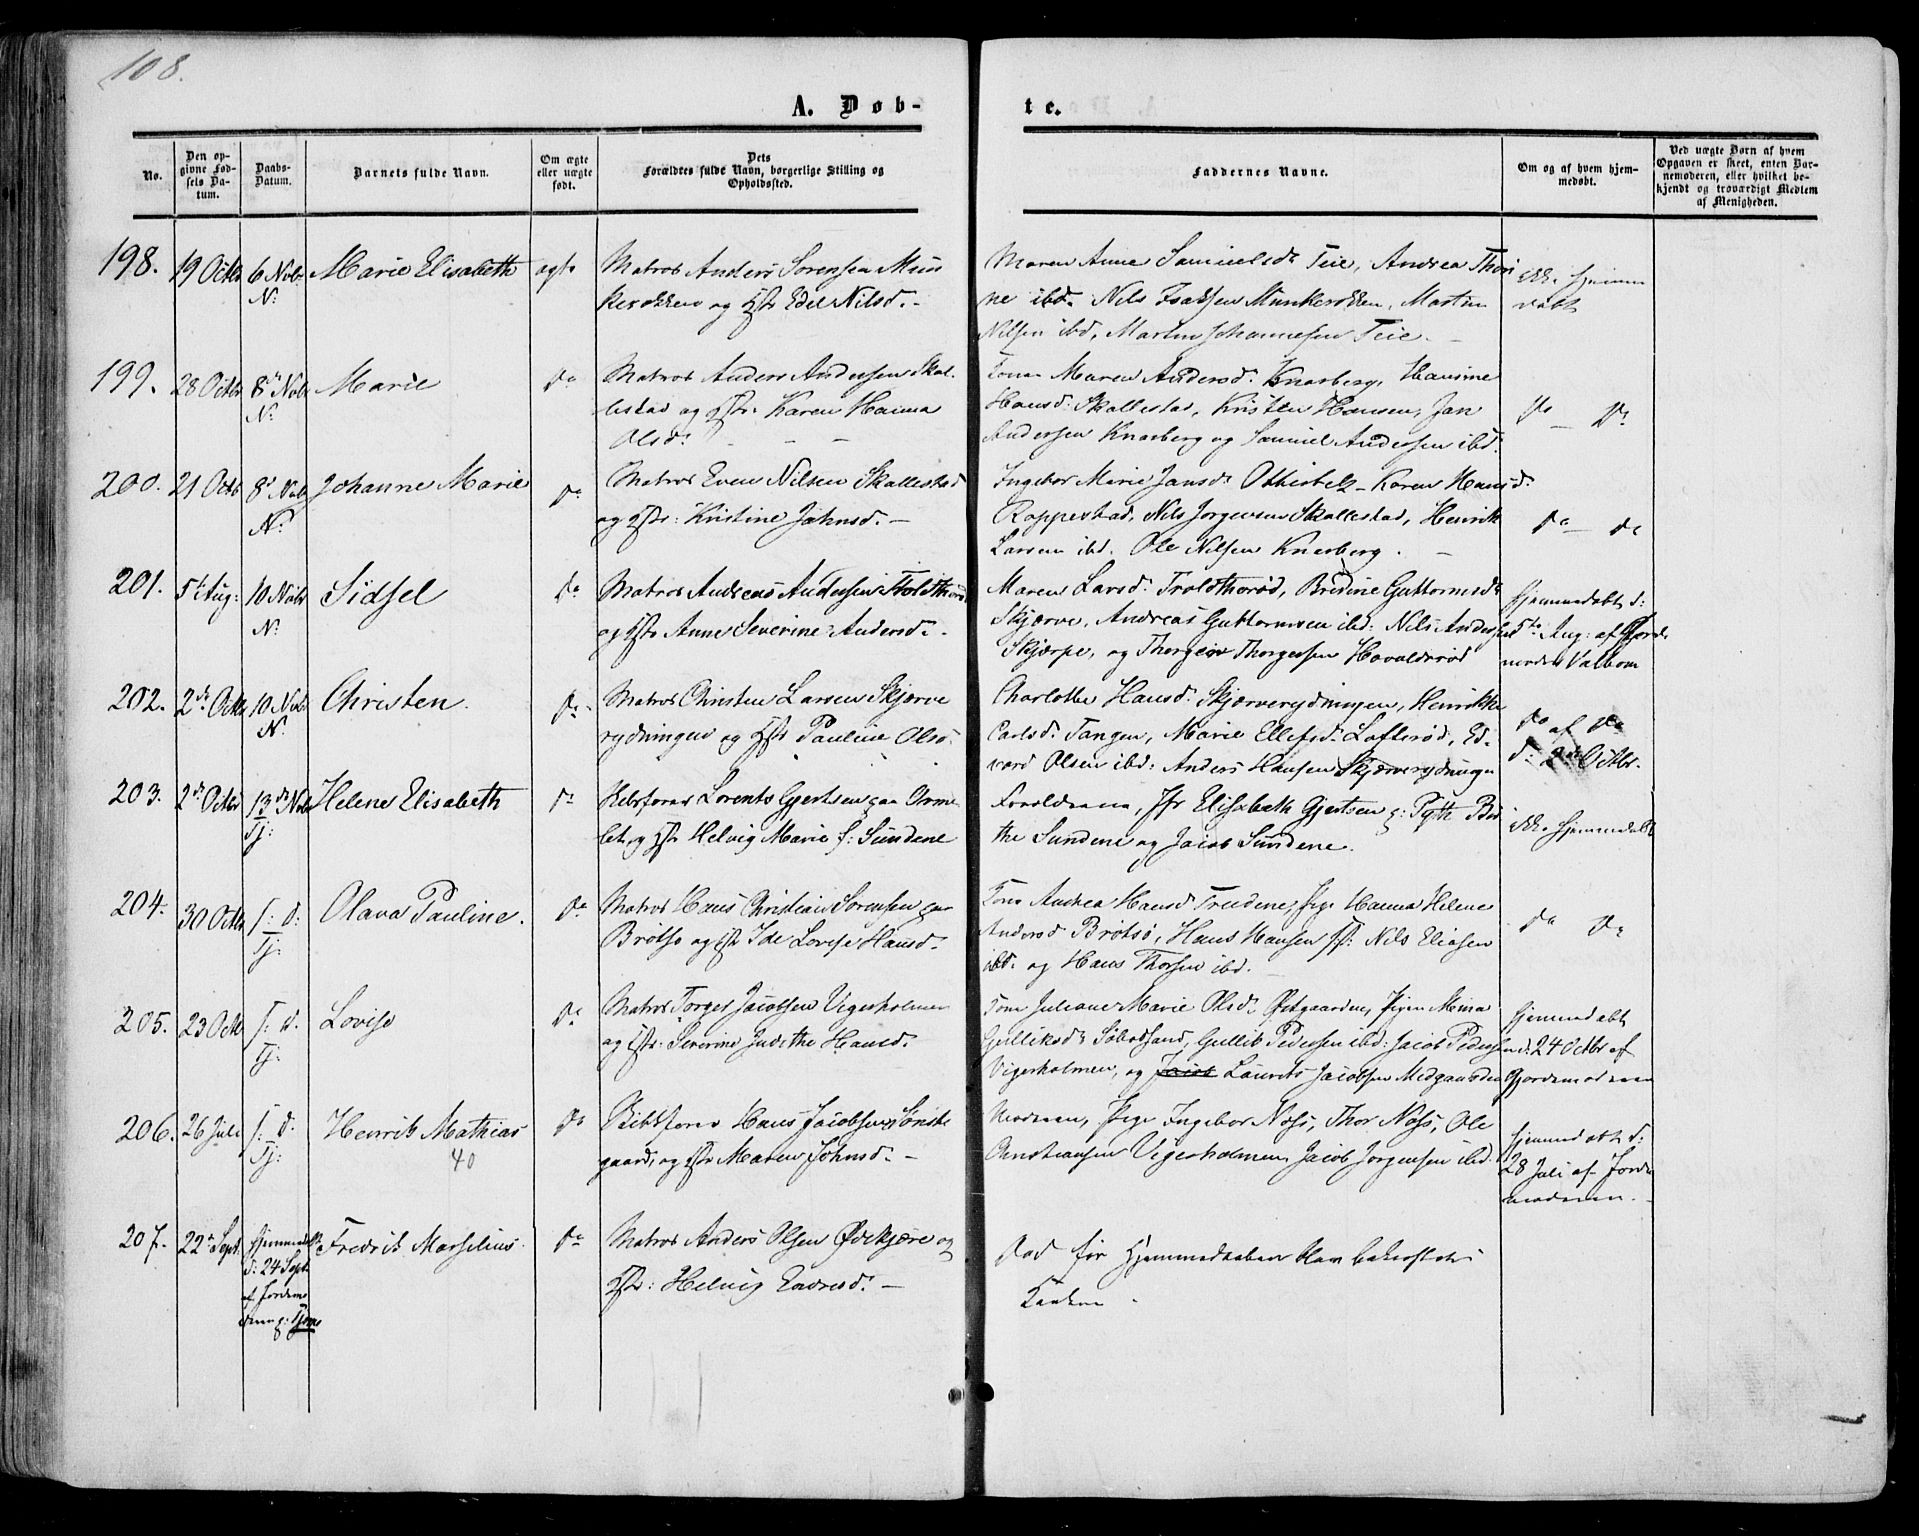 108.
A. Døb-
te.
No.
Den op-
givne Fød-
sels Da-
tum.
Daabs-
Datum.
Barnets fulde Navn.
Om ægte
eller uægte
født.
Dets
Forældres fulde Navn, borgerlige Stilling og
Opholdssted.
Faddernes Navne.
Om og af hvem hjem-
medøbt.
Ved uægte Børn af hvem
Opgaven er skeet, enten Bar-
nemoderen, eller hvilket be-
kjendt og troværdigt Medlem
af Menigheden.
198. 19 Octbr 6 Nvbr Marie Elisabeth ægte
N:
Matros Anders Sørensen Mun
kerokken og Hstr Edel Nilsd. -
Maren Anne Samuelsd: Teie, Andrea Thori
ne ibd. Nils Isaksen Munkerokken, Martin
Nilsen ibd, Martin Johannesen Teie. -
ikke hjemme
døbt
199. 28 Octbr 8de Nvbr Marie do
N:
Matros Anders Andersen Skal-
lestad og Hstr. Karen Hanna
Olsd: - - -
Kone Maren Andersd. Knarberg, Hansine
Hansd: Skallestad, Kristen Hansen, Jan
Andersen Knarberg og Samuel Andersen ibd:
do - do
200. 21 Octb 8de Nvbr Johanne Marie do
N:
Matros Even Nilsen Skallestad
og Hstr: Kristine Johnsd. -
Ingebor Marie Jansd: - Karen Hansd.
Roppestad, Nils Jørgensen Skallestad, Henrik
Larsen ibd. Ole Nilsen Knarberg. -
do - do
201. 5te Aug: 10 Nvbr Sidsel do
N:
Matros Andreas Andersen Troldthorød,
og Hstr Anne Severine Andersd. -
Maren Larsd. Troldthorød, Bredine Guttormsd:
Skjærve, Andreas Guttormsen ibd: Nils Andersen
Skjærpe, og Thorger Thorgersen Havaldsrød
hjemmedøbt d:
5te Aug: af Gjorde
moder Valbom
202. 2de Octbr 10 Nvbr Christen. do
N.
Matros Christen Larsen Skjærve
rydningen og Hstr Pauline Olsd.
Charlotte Hansd. Skjærverydningen, Henrikke
Carlsd. Tangen, Marie Ellefsd. Lofterød, Ed-
vard Olsen ibd: Anders Hansen Skjærverydningen
do af do
d: 2de Octbr.
203. 2de Octbr 13de Nvbr Helene Elisabeth do
Tj:
Skibsfører Lorents Gjertsen paa Orme
let, og Hstr Helvig Marie f: Sundene
Forældrene, Jfr Elisabeth Gjertsen g: Pytt Bør
the Sundene og Jacob Sundene.
ikke hjemmedøbt
204. 30 Octbr s: d: Olava Pauline. do
Tj:
Matros Hans Christian Sørensen paa
Brøtsø og Hstr Ide Lovise Hansd.
Kone Andrea Hansd Truedene, Pige Hanna Helene
Andersd Brøtsø, Hans Hansen Nils Eliasen
ibd. og Hans Thorsen ibd. -
do do
205. 23 Octb s: d. Lovise do
Tj:
Matros Torger Jacobsen Vigerholmen
og Hstr: Severine Judithe Hansd. -
Kone Juliane Marie Olsd. Østgaarden, Pigen Mina
Gulliksd: Søbodsand, Gullik Pedersen ibd: Jacob Pedersen
Vigerholmen, og Jacob Laurits Jacobsen Midgaarden
hjemmedøbt
d: 24 Octbr af
Gjordemoderen
206. 26 Juli s: d: Henrik Mathias do
Tj: 40
Skibsfører Hans Jacobsen Sønste
gaard, og Hstr Maren Johnsd. -
Moderen, Pige Ingebor Nøss, Thor Nøss, Ole
Christiansen Vigerholmen, Jacob Jørgensen ibd.
hjemmedøbt d:
28 Juli af Jorde
moderen. -
207. 22de Sept. hjemmedøbt Fredrik Marselius. do
d: 24 Sept
af Jordemo
deren
Matros Anders Olsen Ødekjære og
Hstr: Helvig Endresd. -
Død før Hjemmedaaben blev bekræftet i
Kirken -